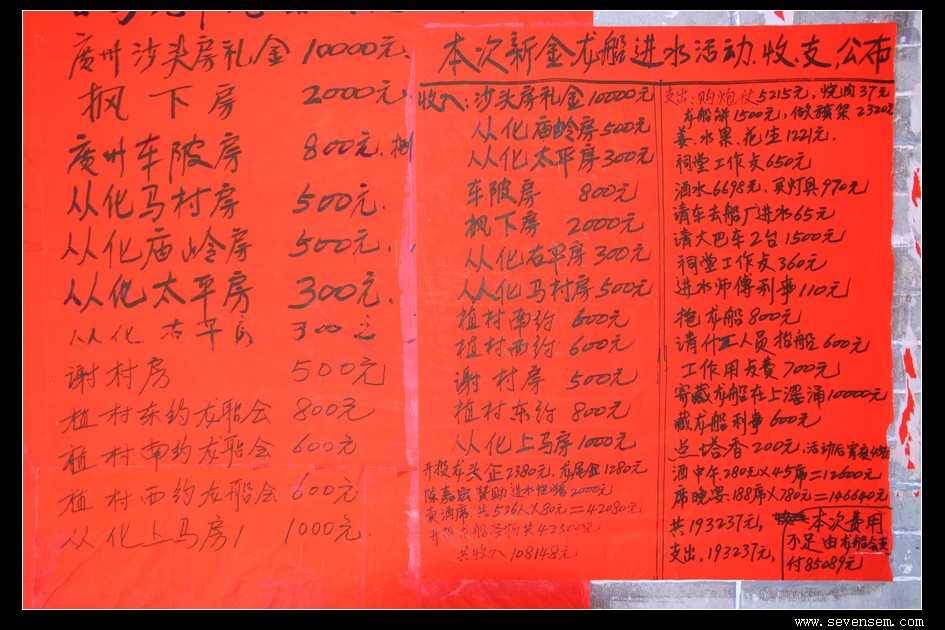 广州沙头房礼金 10000元.
枫下房 2000元
广州车陂房 800元.
从化马村房 500元.
从化庙岭房 500元.
从化太平房 300元.
从化右平房 300元
谢村房 500元
植村东约龙船会 800元
植村南约龙船会 600元
植村西约龙船会 600元
从化上马房 1000元
本次新金龙船进水活动.收.支.公布
收入:沙头房礼金10000元
从化庙岭房500元
从化太平房300元
车陂房 800元
枫下房 2000元
从化右平房300元
从化马村房500元
植村南约 600元
植村西约 600元
谢村房 500元
植村东约 800元
从化上马房1000元
开投龙头企2380元,龙尾企1280元
陈嘉宏赞助进水烧猪2000元
卖酒席共526人X80元=42080元
共收入108148元
支出:购炮仗5215元,烧肉37元
龙船饼1500元,做旗架2320元
姜.水果.花生1221元.
祠堂工作女650元
酒水6698元,买灯具970元
请车去船厂进水65元
请大巴车2台1500元
祠堂工作女360元
进水师傅利事110元
拖龙船800元
请什工人员抬船600元
工作用女费700元
寄藏龙船在上漖涌10000元
藏龙船利事600元
点塔香200元,活动后宵夜
酒中午280元X45席=12600元
席晚宴188席X780元=146640元
共193237元,
支出.193237元,
本次费用
不足由龙船会支
付85089元
www.sevensem.com